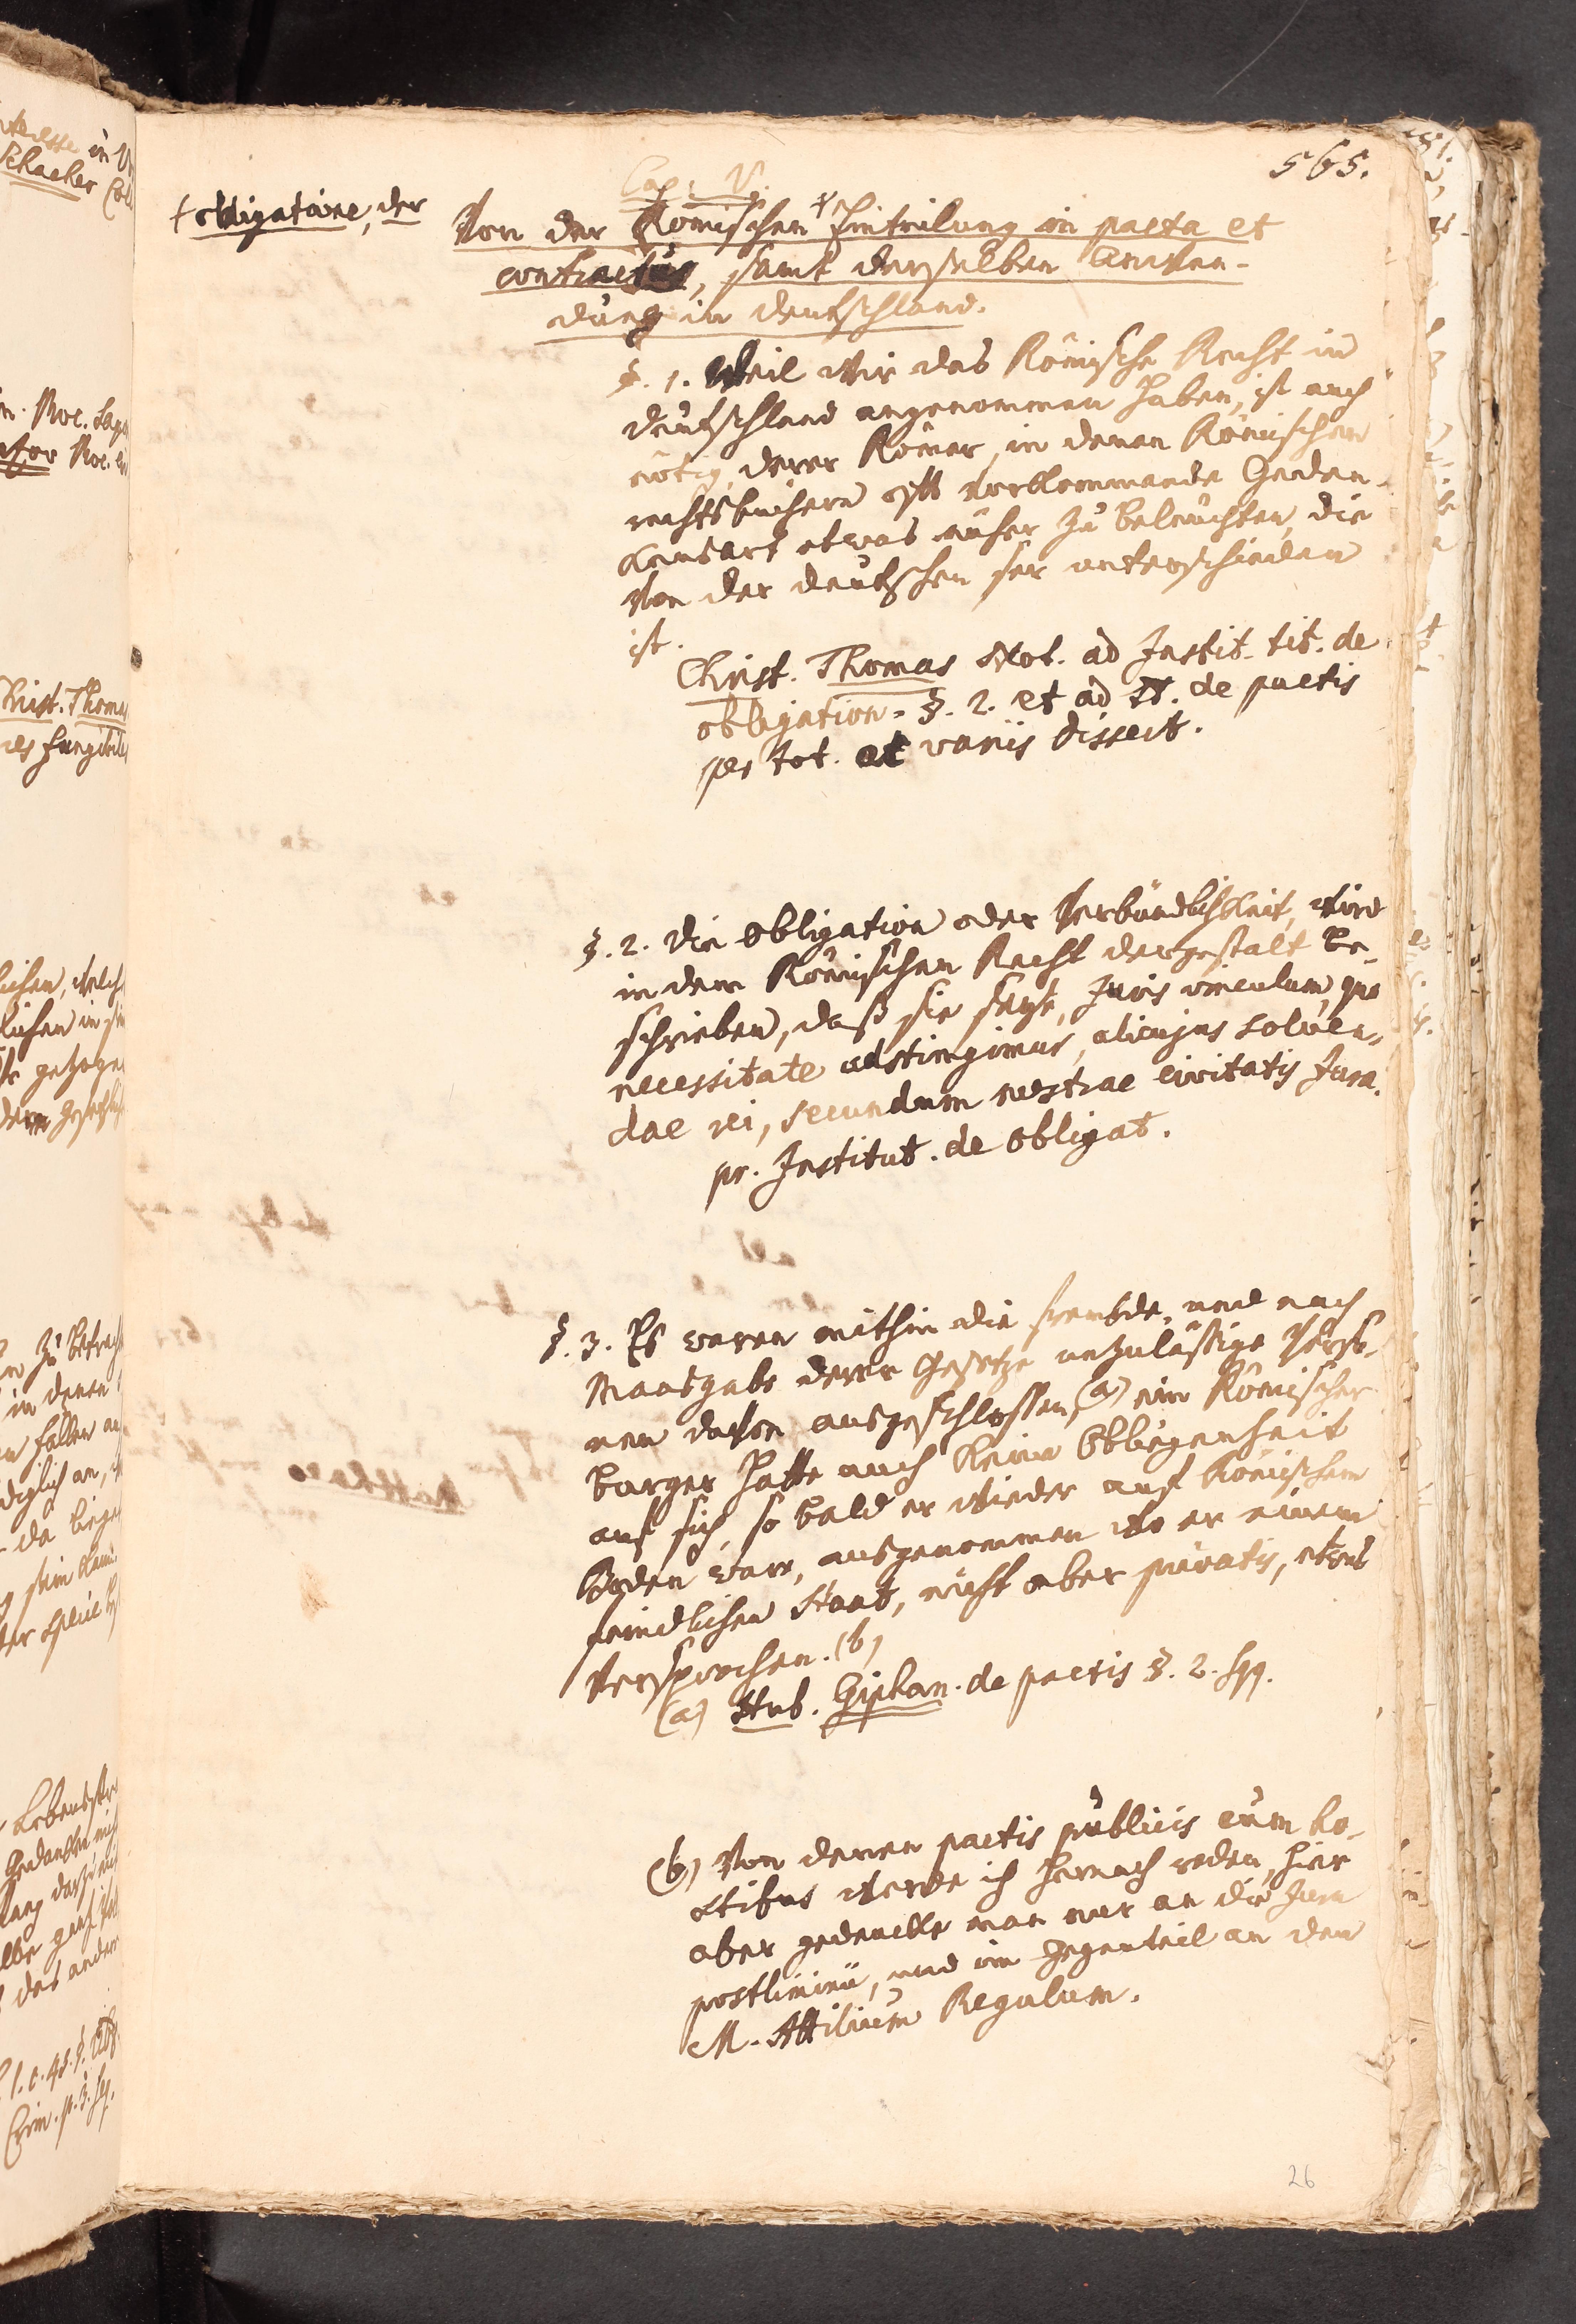 565.
Cap. V.
+ obligatione, der
Von der Römischen + Einteilung in pacta et
contractus, samt derselben Anwen-
dung in Deutschland.
§. 1. Weil wir das Römische Recht in
Deutschland angenommen haben, ist auch
nötig, derer Römer, in denen Römischen
rechtsbüchern oft vorkommende Geden-
kensart etwas näher zu beleuchten, die
von der deutschen ser unterschieden
ist.
Christ. Thomas Not. ad Instit. tit. de
obligation. §. 2. et ad tt. de pactis
per tot. et variis dissert.
§. 2. Die Obligation oder Verbündlichkeit, wird
in dem Römischen Recht dergestalt be-
schrieben, daß sie seye, Juris vinculum, quo
necessitate adstringimur, alicujus solven-
dae rei, secundum nostrae civitatis Jura.
pr. Institut. de obligat.
§. 3. Es waren mithin die frembde, und nach
Maasgabe derer Gesetze unzuläßige Perso-
nen davon ausgeschlossen, (a) ein Römischer
burger hatte auch keine Obligenheit
auf sich, so bald er wieder auf Römischem
Boden war, ausgenommen wo er einem
feindlichen Staat, nicht aber privatis, etwas
versprochen. (b)
(a) Hub. Giphan. de pactis §. 2. sqq.
(b) Von denen pactis publicis cum ho-
stibus werde ich hernach reden, hier
aber gedencke man nur an die Jura
postliminii, und im gegenteil an den
M. Attilium Regulum.
26